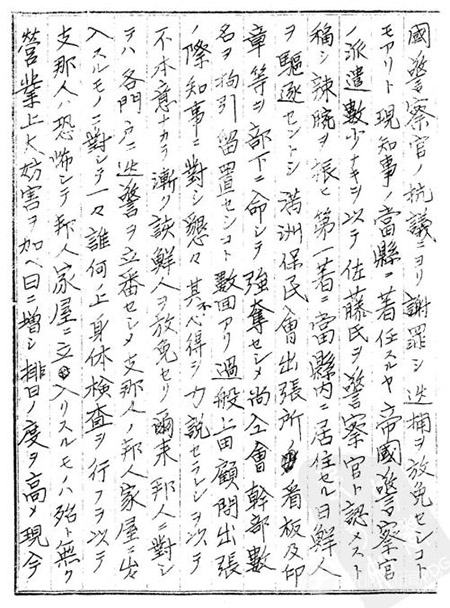 國警察官ノ抗議ニヨリ謝罪シ逮捕ヲ放免セシコト
モアリト現知事ノ當縣ニ著任スルヤ帝國警察官
ノ派遣數少ナキヲ以テ佐藤氏ヲ警察官ト認メスト
稱シ辣腕ヲ振ヒ第一著ニ當縣內ニ居住セル日鮮人
ヲ驅逐セントシ滿洲保民會出張所ノ看板及印
章等ヲ部下ニ命シテ強奪セシメ尚仝會幹部數
名ヲ拘引留置セシコト數回アリ過般上田顧問出張
ノ際知事ニ對シ懇々其不心得ヲ力説セラレシヲ以テ
不本意ナカラ漸ク該鮮人ヲ放免セリ爾来邦人ニ對シ
テハ各門戶ニ巡警ヲ立番セシメ支那人ノ邦人家屋ニ出
入スルモノニ對シテ一々誰何ノ上身体檢査ヲ行フヲ以テ
支那人ハ恐怖シテ邦人家屋ニ立入リスルモノハ殆ト無ク
營業上大妨害ヲ加ヘ日ニ增シ排日ノ度ヲ高メ現今